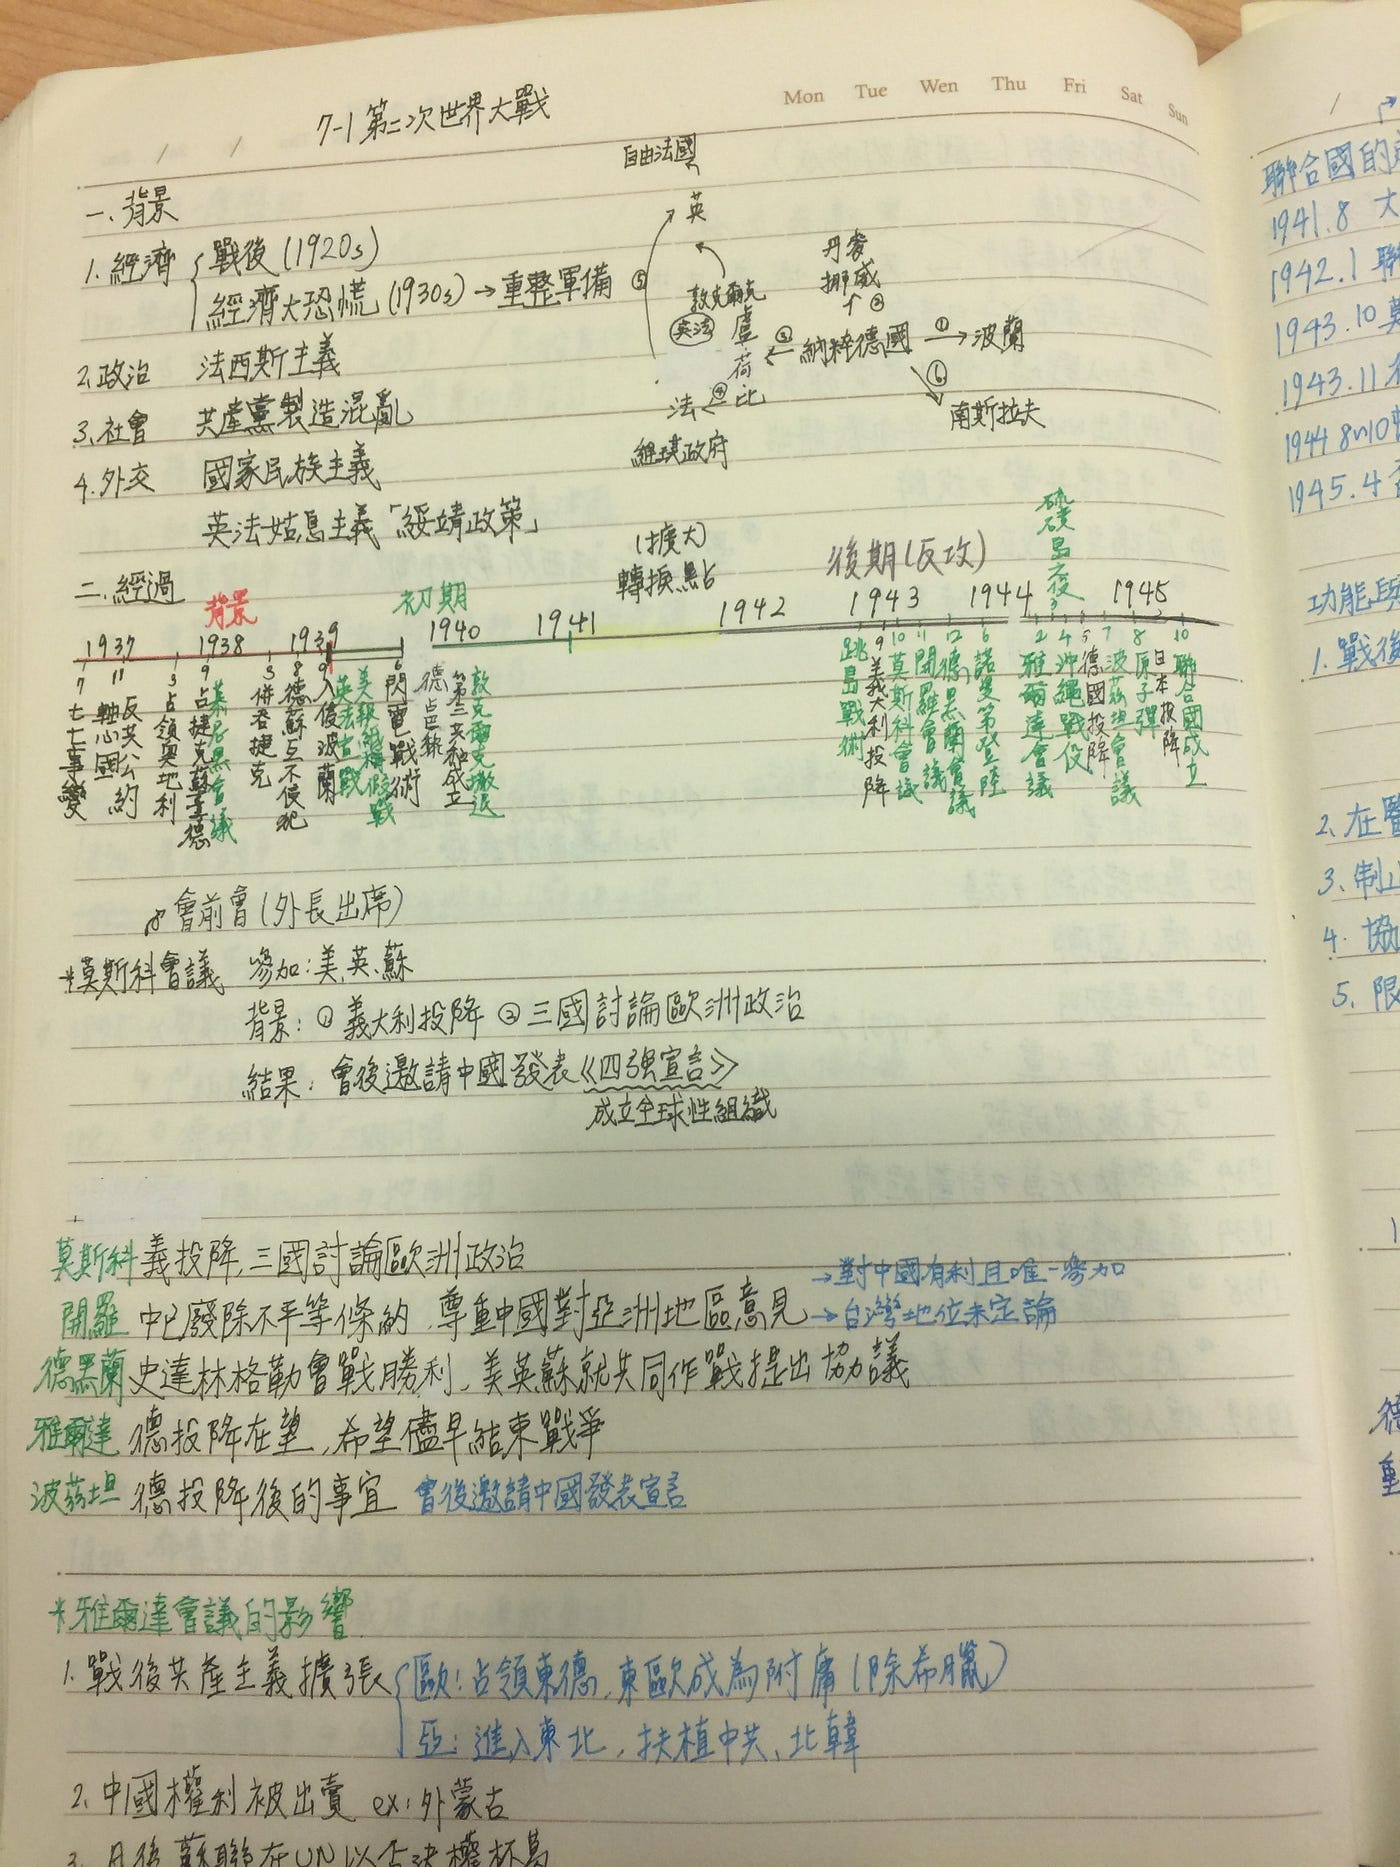 Mon Tue Wed Thu Fri Sat Sun
7-1 第二次世界大戰
一、背景
1.經濟 戰後(1920s)
經濟大恐慌(1930s)→重整軍備
2.政治 法西斯主義
3.社會 共產黨製造混亂
4.外交 國家民族主義
英法姑息主義「綏靖政策」
自由法國
英
⑤
敦克爾克
英法
丹麥
挪威
↑②
盧荷比
③← 納粹德國 ①→ 波蘭
⑥
南斯拉夫
法 ④
維琪政府
二、經過
背景
初期
(擴大)
轉捩點
後期(反攻)
硫磺島之役
1937 1938 1939 1940 1941 1942 1943 1944 1945
7 七七事變
11 反共公約
軸心國
3 占領奧地利
9 占捷克蘇臺德
慕尼黑會議
3 併吞捷克
8 德蘇互不侵犯
9 入侵波蘭
英法宣戰
美報紙稱假戰
6 閃電戰術
德占巴黎
敦克爾克撤退
跳島戰術
9 義大利投降
10 莫斯科會議
11 開羅會議
12 德黑蘭會議
6 諾曼第登陸
2 雅爾達會議
3
4 沖繩戰役
5 德國投降
7 波茲坦會議
8 原子彈
日本投降
10 聯合國成立
會前會(外長出席)
*莫斯科會議 參加:美.英.蘇
背景:①義大利投降 ②三國討論歐洲政治
結果:會後邀請中國發表《四強宣言》
成立全球性組織
莫斯科 義投降,三國討論歐洲政治
開羅 中已廢除不平等條約,尊重中國對亞洲地區意見
→對中國有利且唯一參加
→台灣地位未定論
德黑蘭 史達林格勒會戰勝利,美英蘇就共同作戰提出協議
雅爾達 德投降在望,希望儘早結束戰爭
波茲坦 德投降後的事宜 會後邀請中國發表宣言
*雅爾達會議的影響
1.戰後共產主義擴張 歐:占領東德,東歐成為附庸(除希臘)
亞:進入東北,扶植中共、北韓
2.中國權利被出賣 ex:外蒙古
聯合國的
1941.8 大
1942.1 聯
1943.10 莫
1943.11
1944 8~10
1945.4
1.戰後
2.在醫
3.制止
4.協
5.限